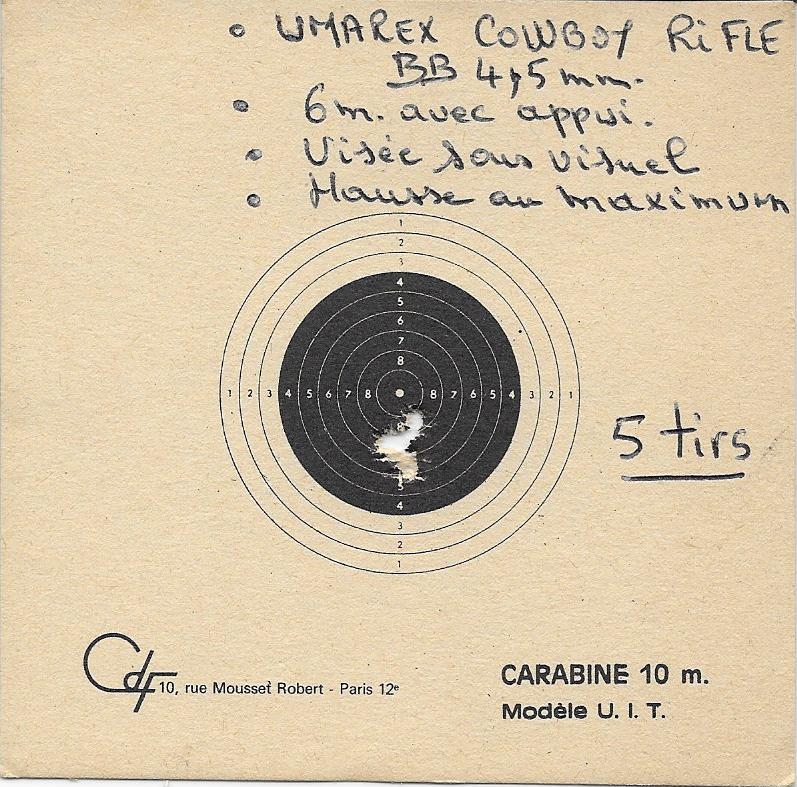 • UMAREX COWBOY RiFLE
BB 4,5 mm.
• 6 m. avec appui.
• Visée sous visuel
• Hausse au maximum
1
2
3
4
5
6
7
8
1 2 3 4 5 6 7 8 8 7 6 5 4 3 2 1
8
5
4
3
2
1
5 tirs
Cdf 10, rue Mousset Robert - Paris 12e
CARABINE 10 m.
Modèle U. I. T.